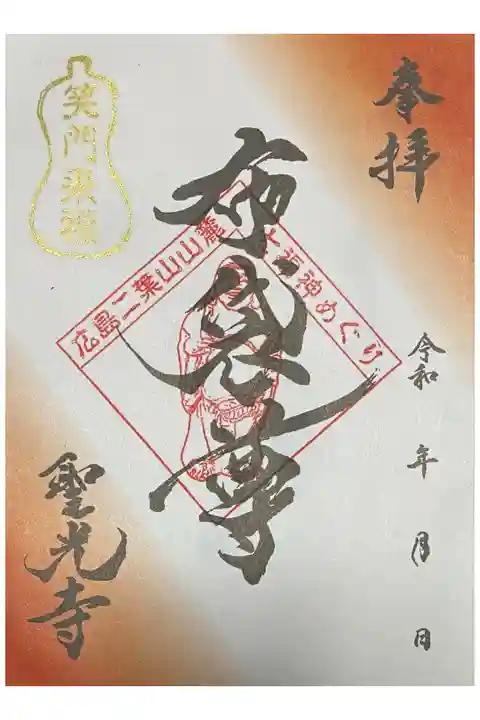 奉拝
布袋尊
広島二葉山山麓
七福神めぐり
笑門来福
令和 年 月 日
聖光寺